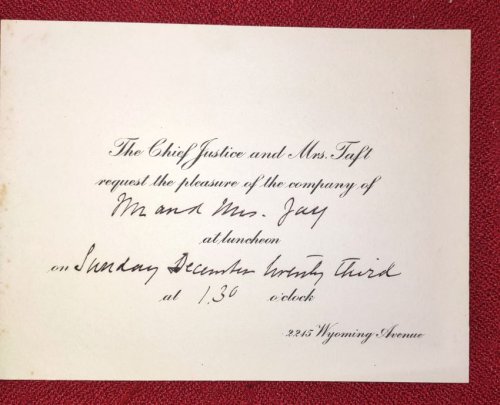 The Chief Justice and Mrs. Taft
request the pleasure of the company of
Mr and Mrs. Jay
at luncheon
on Sunday December twenty third
at 1.30 o'clock
2215 Wyoming Avenue